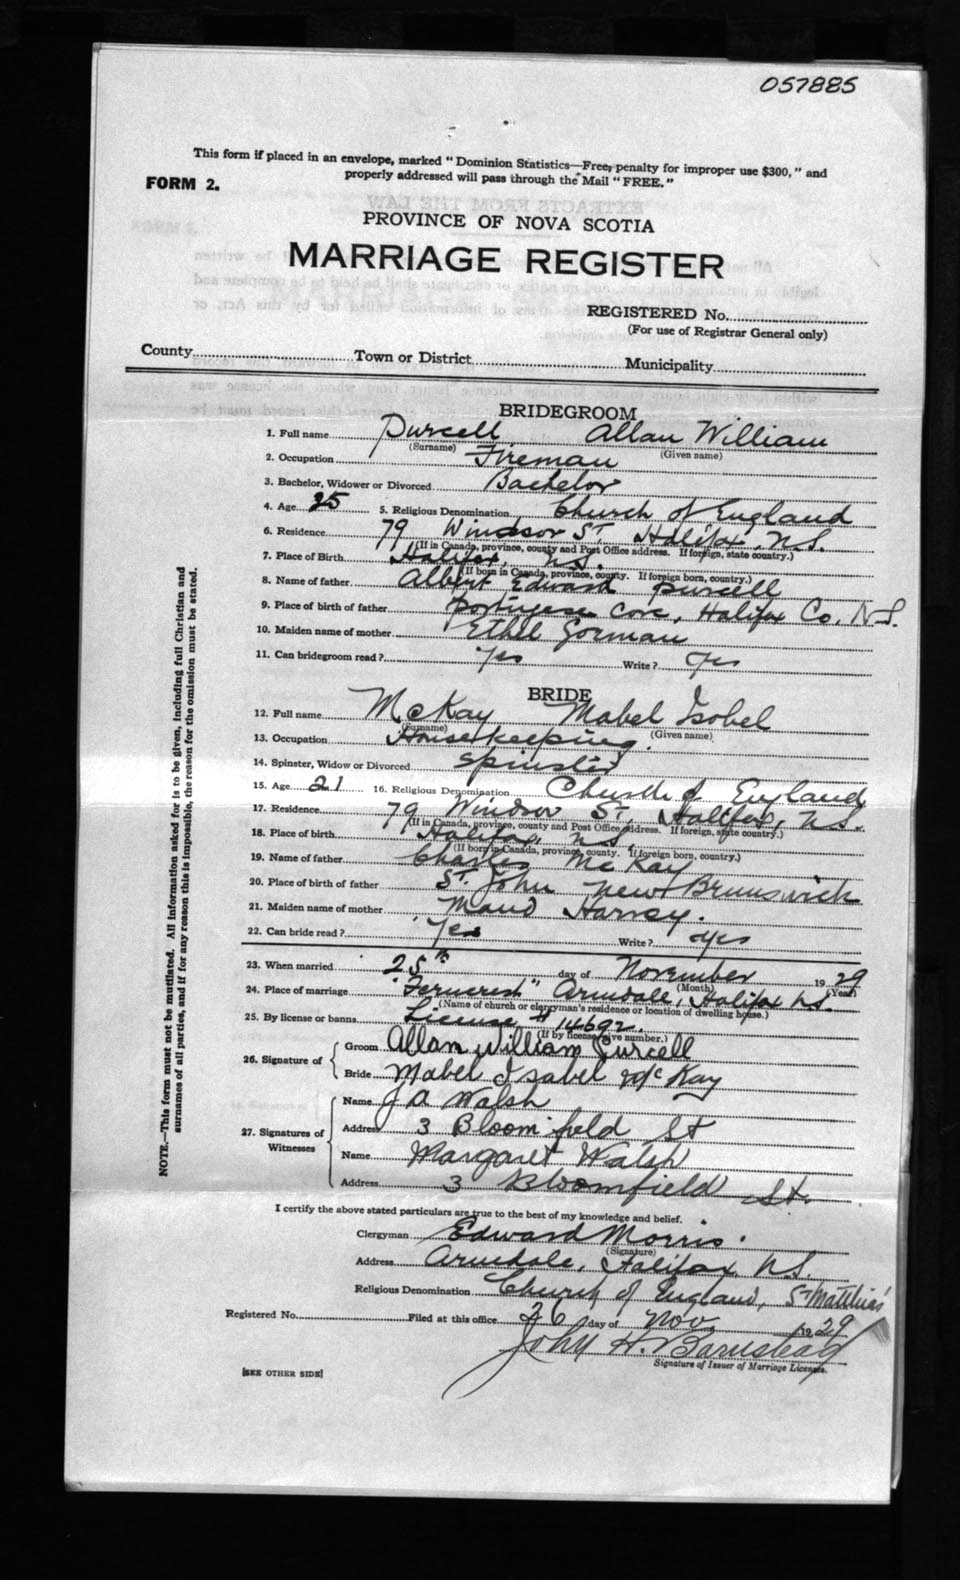 057885
This form if placed in an envelope, marked "Dominion Statistics—Free, penalty for improper use $300," and
properly addressed will pass through the Mail "FREE."
FORM 2.
PROVINCE OF NOVA SCOTIA
MARRIAGE REGISTER
REGISTERED No.
(For use of Registrar General only)
County Town or District Municipality
BRIDEGROOM
1. Full name Purcell Allan William
(Surname) (Given name)
2. Occupation Fireman
3. Bachelor, Widower or Divorced Bachelor
4. Age 25 5. Religious Denomination Church of England
6. Residence 79 Windsor St Halifax, N.S.
(If in Canada, province, county and Post Office address. If foreign, state country.)
7. Place of Birth Halifax, N.S.
(If born in Canada, province, county. If foreign born, country.)
8. Name of father Albert Edward Purcell
9. Place of birth of father Portugese Cove, Halifax Co. N.S.
10. Maiden name of mother Ethel Gorman
11. Can bridegroom read? Yes Write? Yes
BRIDE
12. Full name McKay Mabel Isobel
(Surname) (Given name)
13. Occupation Housekeeping.
14. Spinster, Widow or Divorced Spinster
15. Age 21 16. Religious Denomination Church of England
17. Residence 79 Windsor St, Halifax, N.S.
(If in Canada, province, county and Post Office address. If foreign, state country.)
18. Place of birth Halifax, N.S.
(If born in Canada, province, county. If foreign born, country.)
19. Name of father Charles McKay
20. Place of birth of father St. John New Brunswick
21. Maiden name of mother Maud Harvey.
22. Can bride read? Yes Write? Yes
23. When married 25th day of November 1929
(Month) (Year)
24. Place of marriage "Ferncrest" Armdale, Halifax N.S.
(Name of church or clergyman's residence or location of dwelling house.)
25. By license or banns License # 14692.
(If by license give number.)
26. Signature of Groom Allan William Purcell
Bride Mabel Isabel McKay
27. Signatures of Witnesses
Name J A Walsh
Address 3 Bloomfield St
Name Margaret Walsh
Address 3 Bloomfield St.
I certify the above stated particulars are true to the best of my knowledge and belief.
Clergyman Edward Morris.
(Signature)
Address Armdale, Halifax, N.S.
Religious Denomination Church of England, St Matthias
Registered No. Filed at this office 26 day of Nov. 1929
John H. Barnstead
Signature of Issuer of Marriage Licenses.
[SEE OTHER SIDE]
NOTE.—This form must not be mutilated. All information asked for is to be given, including full Christian and
surnames of all parties, and if for any reason this is impossible, the reason for the omission must be stated.